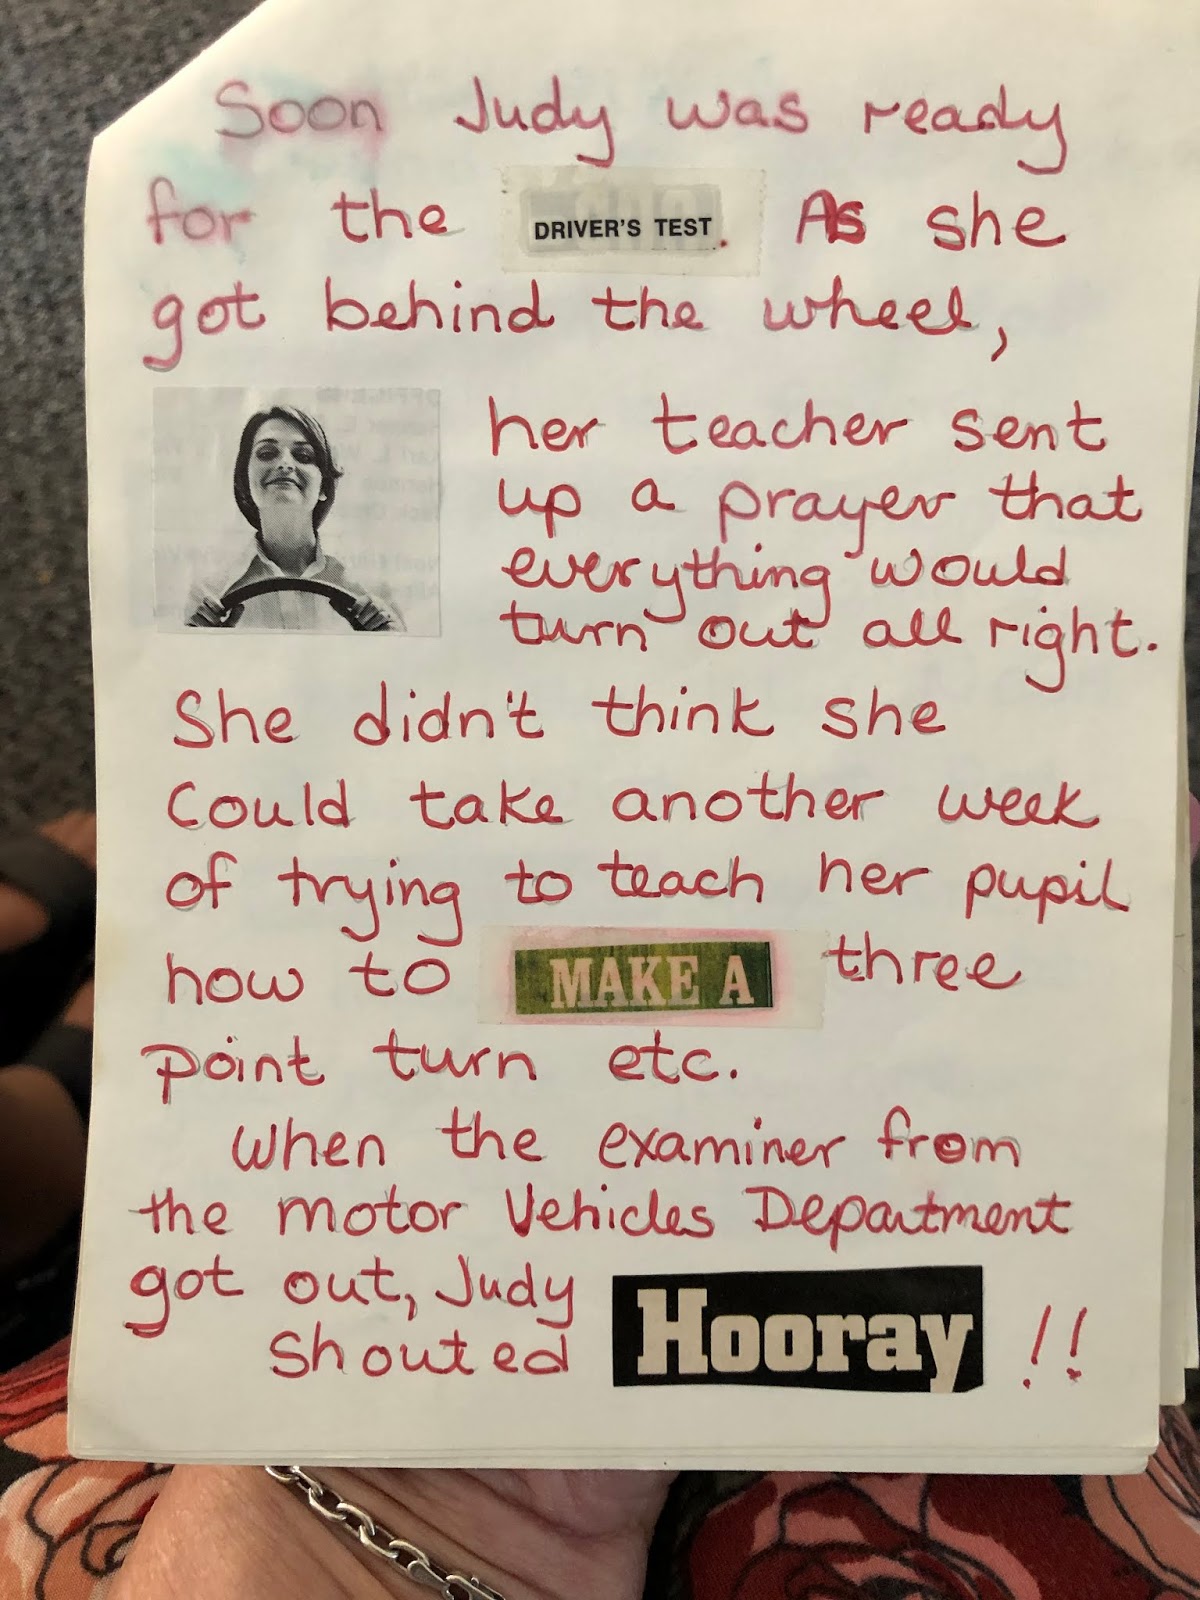 Soon Judy was ready
for the DRIVER'S TEST. As she
got behind the wheel,
her teacher sent
up a prayer that
everything would
turn out all right.
She didn't think she
could take another week
of trying to teach her pupil
how to MAKE A three
point turn etc.
When the examiner from
the Motor Vehicles Department
got out, Judy
shouted Hooray !!